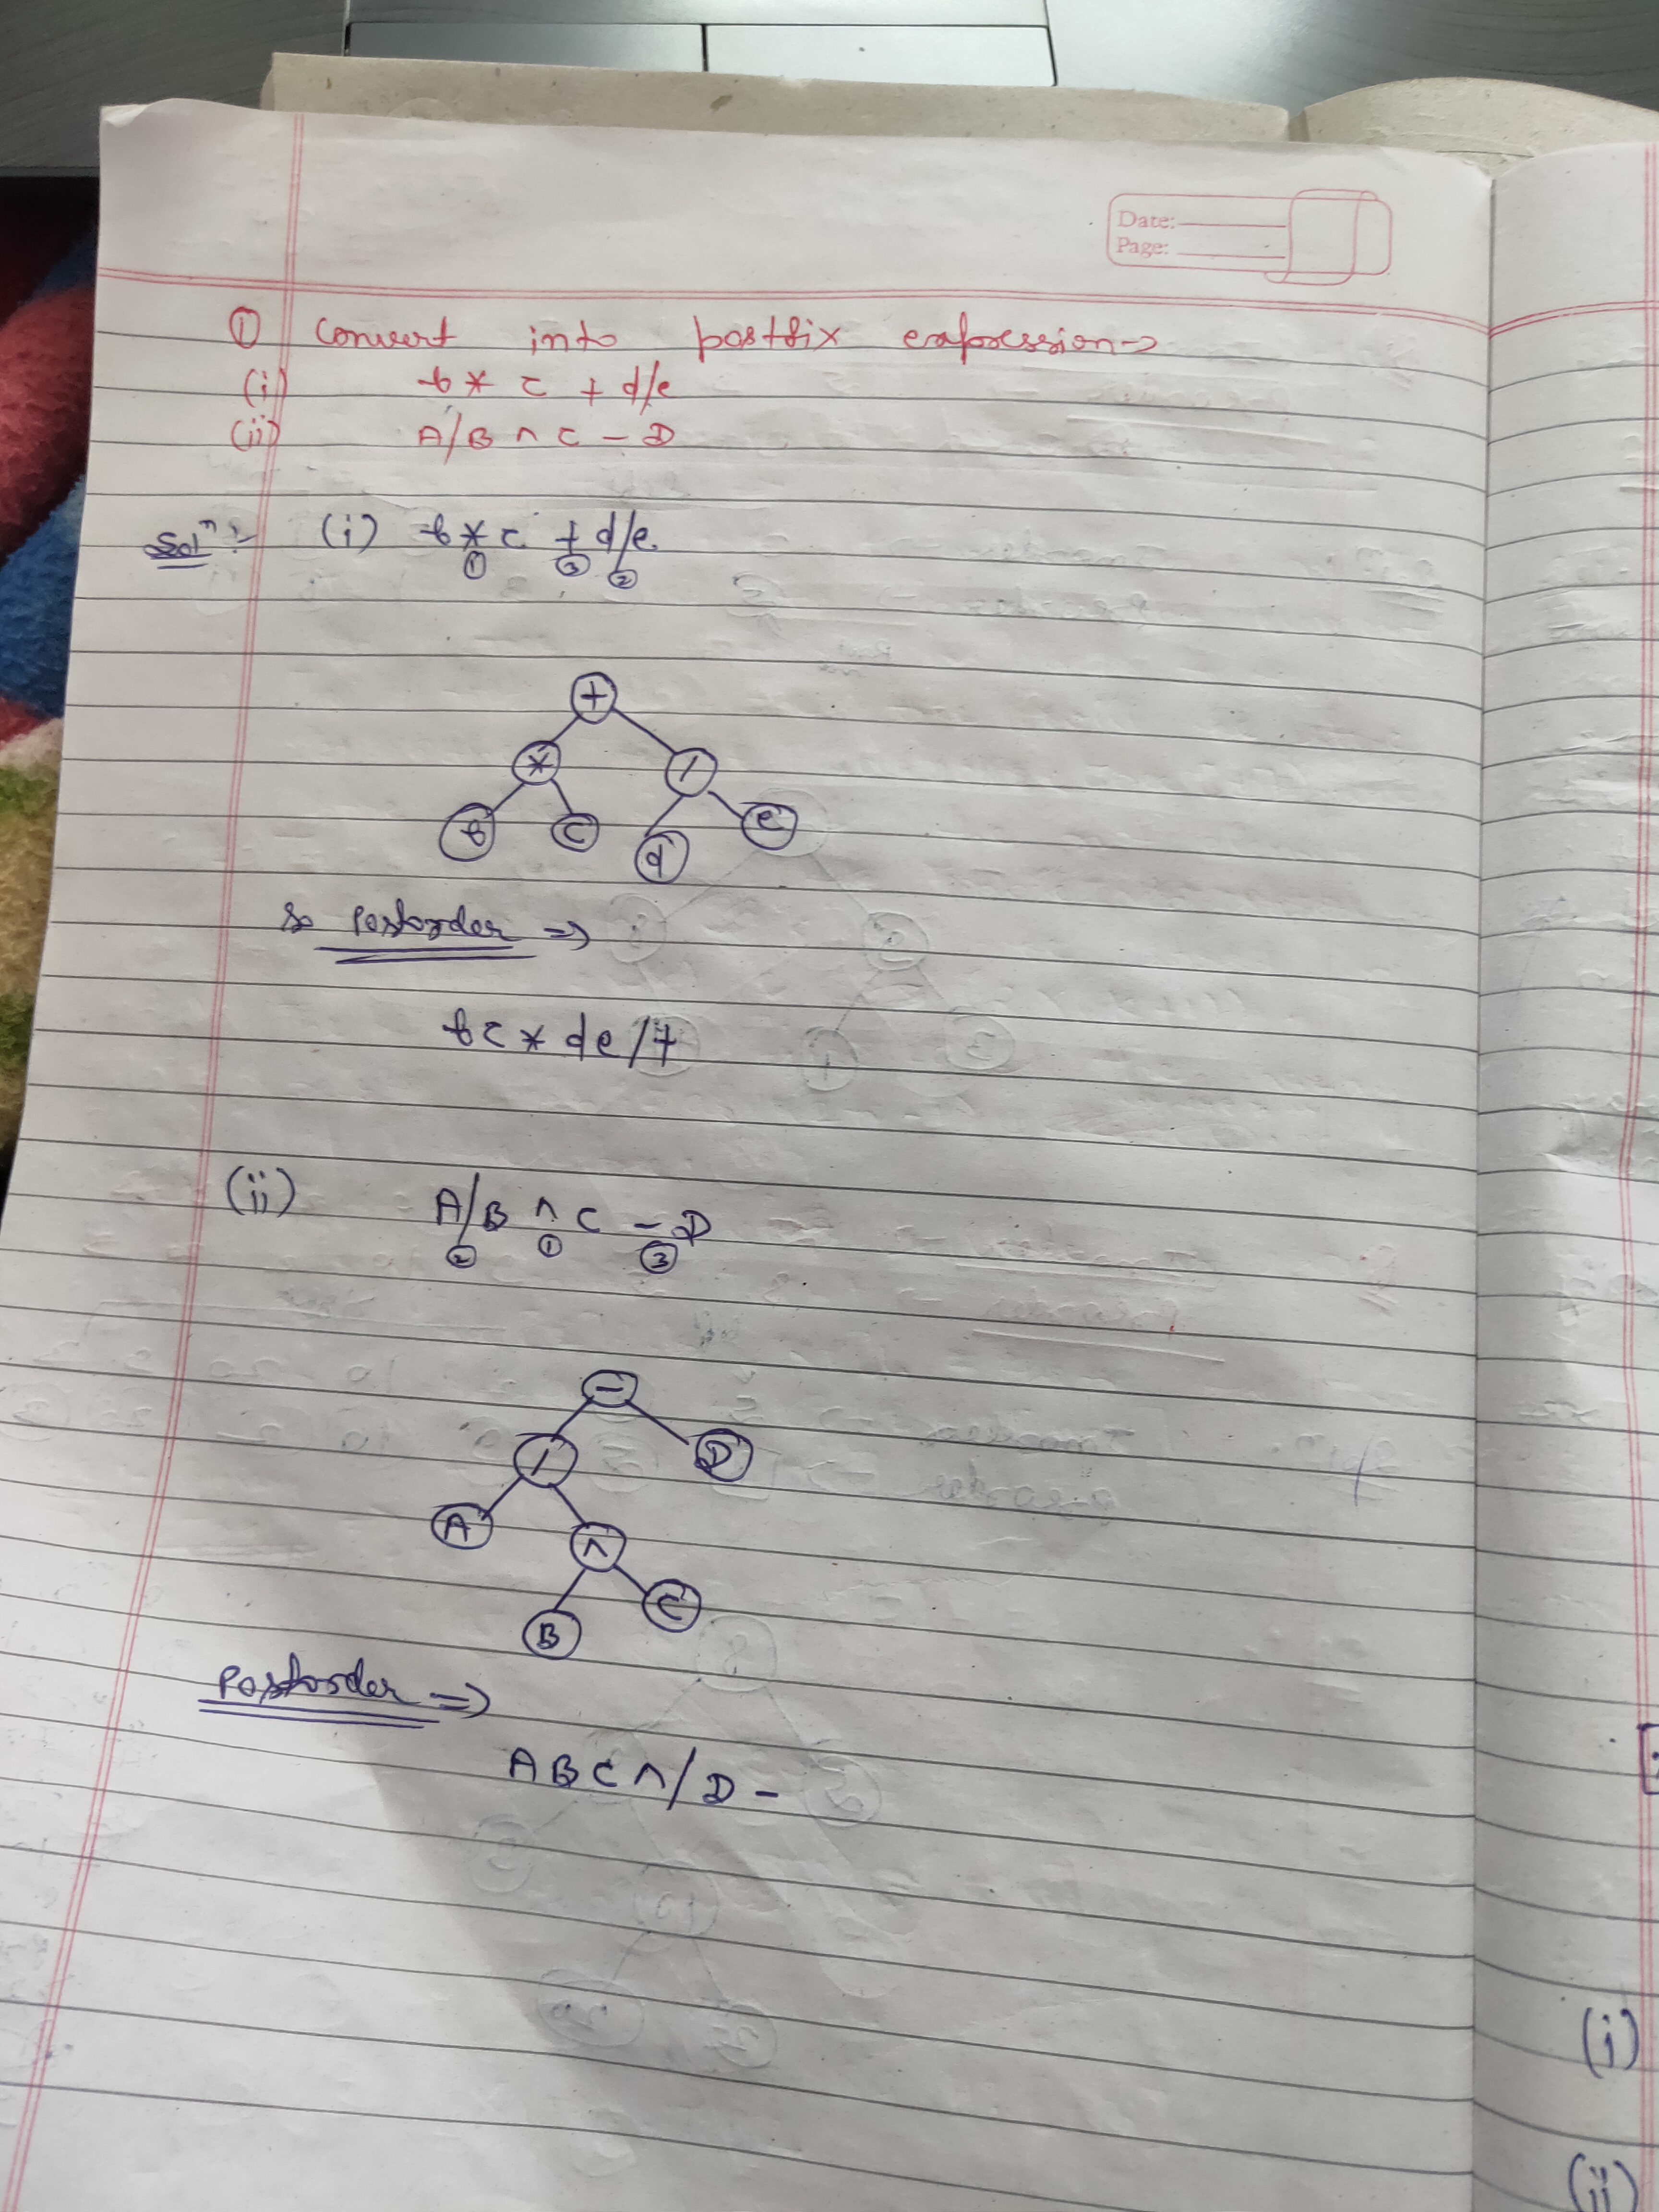 Date:
Page:
① Convert into postfix expression→
(i) b * c + d/e
(ii) A/B ^ C - D
Solⁿ :- (i) b * c + d/e
① ③ ②
+
* /
b c d e
So Postorder ⇒
bc * de /+
(ii) A/B ^ C - D
② ① ③
-
/ D
A ^
B C
Postorder ⇒
ABC^/D-
(i)
(ii)